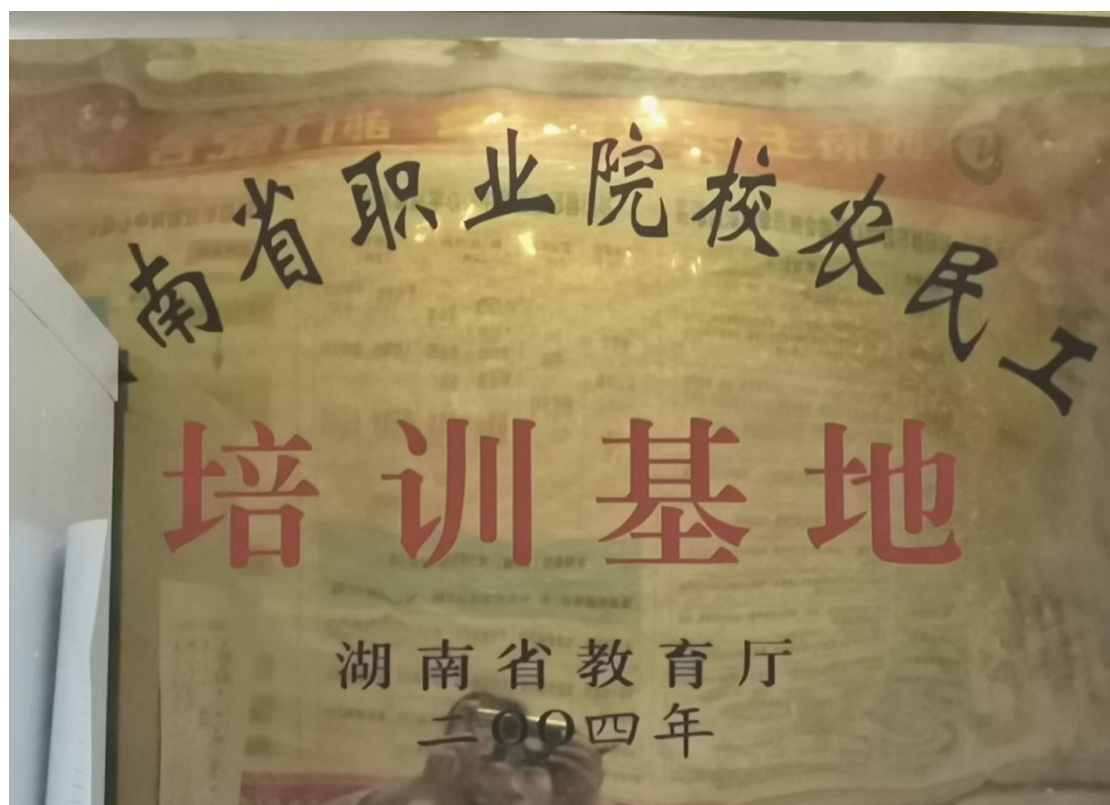 南省职业院校农民工
培训基地
湖南省教育厅
二〇〇四年